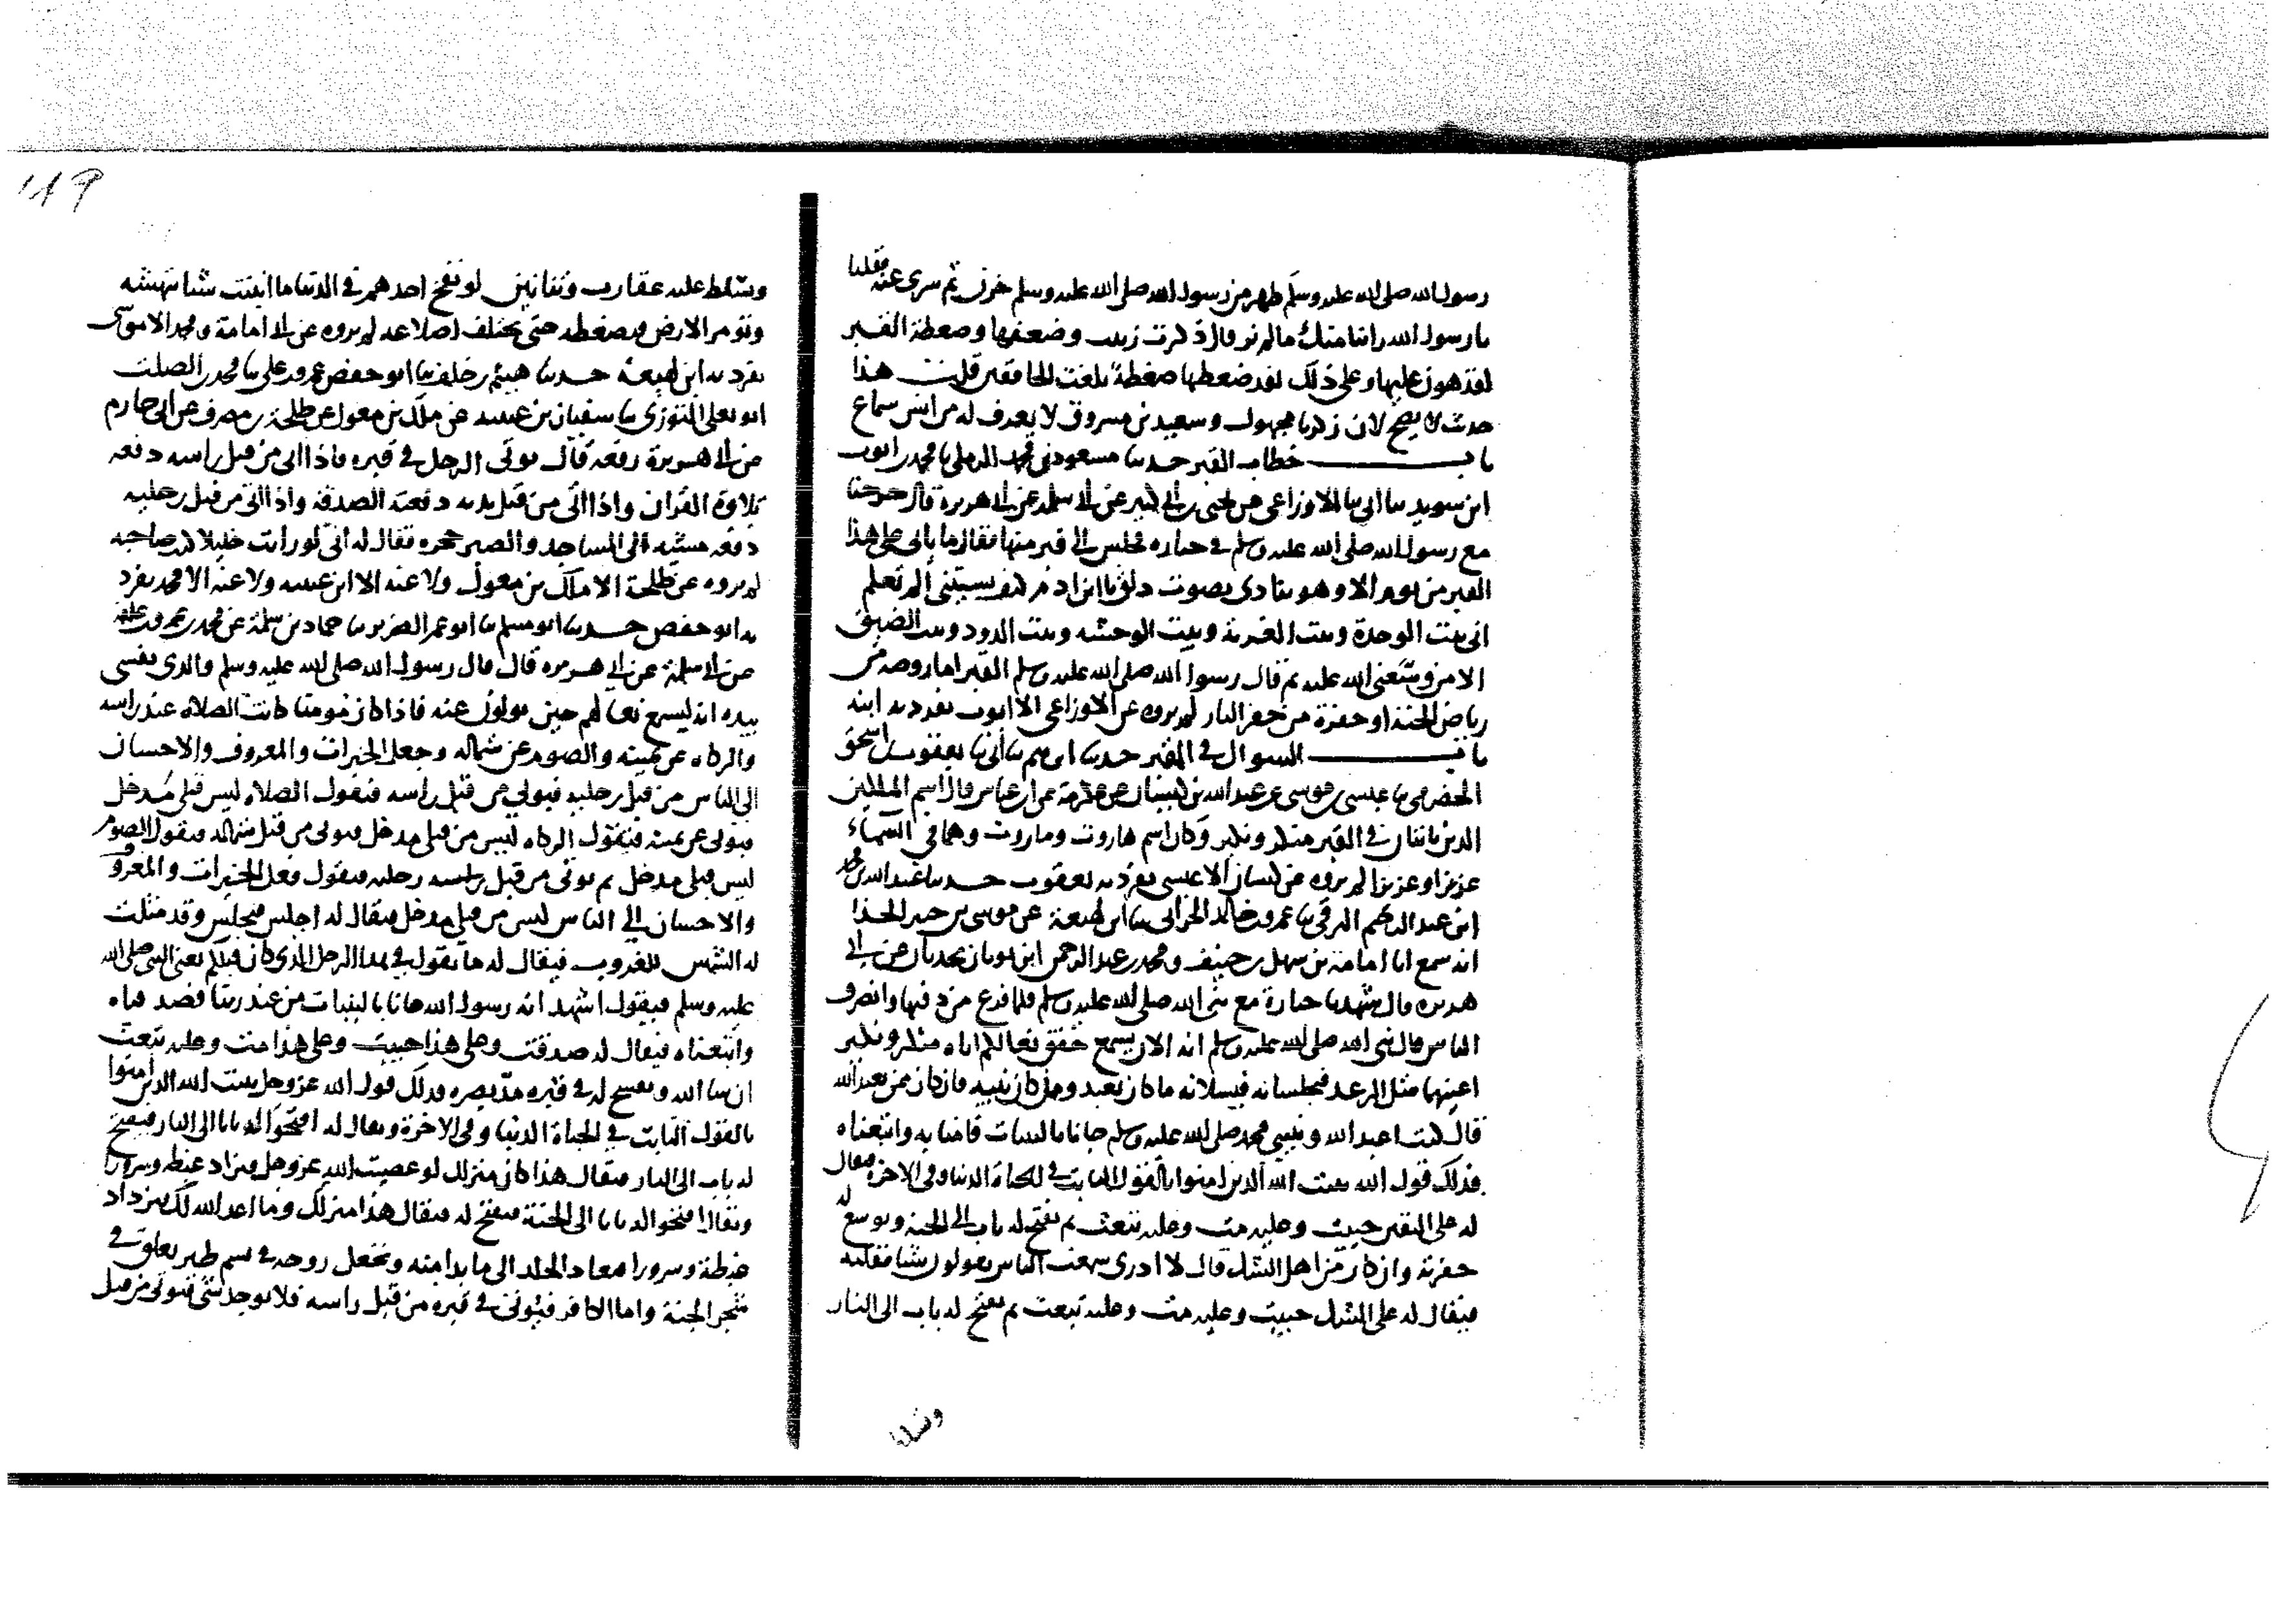 رسول الله صلى الله عليه وسلم ظهر من رسول الله صلى الله عليه وسلم حزن ثم سرى عنه فقلنا
يا رسول الله راينا منك ما لم نر قال ذكرت زينب وضعفها وضغطة القبر
لقد هون عليها وعلى ذلك لقد ضغطها ضغطة بلغت الخافقين قلت هذا
حديث لا يصح لان زكريا مجهول وسعيد بن مسروق لا يعرف له من انس سماع
باب خطاب القبر حدثنا مسعود بن محمد الرملي ثنا محمد بن ايوب
ابن سويد ثنا ابي ثنا الاوزاعي عن يحيى بن ابي كثير عن ابي سلمة عن ابي هريرة قال خرجنا
مع رسول الله صلى الله عليه وسلم في جنازه فجلس الى قبر منها فقال ما ياتي على هذا
القبر من يوم الا وهو ينادي بصوت ذلق يا ابن ادم كيف نسيتني الم تعلم
اني بيت الوحدة وبيت الغربة وبيت الوحشه وبيت الدود وبيت الضيق
الا من وسعني الله عليه ثم قال رسول الله صلى الله عليه وسلم القبر اما روضه من
رياض الجنة او حفرة من حفر النار لم يروه عن الاوزاعي الا ايوب تفرد به ابنه
باب السوال في القبر حدثنا ابراهيم ثنا ابي ثنا يعقوب بن اسحق
الحضرمي ثنا عيسى بن موسى عن عبد الله بن كيسان عن عكرمة عن ابن عباس قال اسم الملكين
الذين ياتيان في القبر منكر ونكير وكان اسم هاروت وماروت وهما في السماء
عزيزا وعزيزا لم يروه عن كيسان الا عيسى تفرد به يعقوب حدثنا عبد الله بن محمد
ابن عبد الرحيم البرقي ثنا عمرو بن خالد الحراني ثنا ابن لهيعة عن موسى بن جبير الحذا
انه سمع ابا امامة بن سهل بن حنيف ومحمد بن عبد الرحمن ابن ثوبان يحدثان عن ابي
هريره قال شهدنا جنازة مع نبي الله صلى الله عليه وسلم فلما فرغ من دفنها وانصرف
الناس قال نبي الله صلى الله عليه وسلم انه الان يسمع خفق نعالكم اتاه منكر ونكير
اعينهما مثل الرعد فيجلسانه فيسلانه ما كان يعبد ومن كان نبيه فان كان ممن يعبد الله
قال كنت اعبد الله ونبيي محمد صلى الله عليه وسلم جانا بالبينات فامنا به واتبعناه
فذلك قول الله يثبت الله الذين امنوا بالقول الثابت في الحياة الدنيا وفي الاخرة فيقال
له على اليقين حييت وعليه مت وعليه تبعث ثم يفتح له باب الى الجنة ويوسع له
حفرته وان كان من اهل الشك قال لا ادري سمعت الناس يقولون شيا فقلته
فيقال له على الشك حييت وعليه مت وعليه تبعث ثم يفتح له باب الى النار
وسلط
١٨٩
وتسلط عليه عقارب وتنانين لو نفخ احدهم في الدنيا ما انبتت شيا تنهشه
وتؤمر الارض فتضغطه حتى تختلف اضلاعه لم يروه عن ابي امامة ومحمد الا موسى
تفرد به ابن لهيعة حدثنا هيثم بن خلف ثنا ابو حفص عمرو بن علي ثنا محمد بن الصلت
ابو يعلى التوزي ثنا سفيان بن عيينه عن مالك بن مغول عن طلحة بن مصرف عن ابي حازم
عن ابي هريرة رفعه قال يوتى الرجل في قبره فاذا اتي من قبل راسه دفعه
تلاوة القران واذا اتي من قبل يديه دفعته الصدقه واذا اتي من قبل رجليه
دفعه مشيه الى المساجد والصبر حجره فقال له اني لو رايت خليلا كنت صاحبه
لم يروه عن طلحة الا مالك بن مغول ولا عنه الا ابن عيينه ولا عنه الا محمد تفرد
به ابو حفص حدثنا ابو مسلم ثنا ابو عمر الضرير ثنا حماد بن سلمة عن محمد بن عمرو بن علقمه
عن ابي سلمة عن ابي هريره قال قال رسول الله صلى الله عليه وسلم والذي نفسي
بيده انه ليسمع نعالهم حين يولون عنه فاذا كان مومنا كانت الصلاه عند راسه
والزكاه عن يمينه والصوم عن شماله وجعل الخيرات والمعروف والاحسان
الى الناس من قبل رجليه فيوتى من قبل راسه فتقول الصلاه ليس قبلي مدخل
فيوتى عن يمينه فتقول الزكاه ليس من قبلي مدخل فيوتى من قبل شماله فيقول الصوم
ليس قبلي مدخل ثم يوتى من قبل رجليه فيقول فعل الخيرات والمعروف
والاحسان الى الناس ليس من قبلي مدخل فيقال له اجلس فيجلس وقد مثلت
له الشمس للغروب فيقال له ما تقول في هذا الرجل الذي كان فيكم يعني النبي صلى الله
عليه وسلم فيقول اشهد انه رسول الله جانا بالبينات من عند ربنا فصدقناه
واتبعناه فيقال له صدقت وعلى هذا حييت وعلى هذا مت وعليه تبعث
ان شا الله ويفسح له في قبره مد بصره فذلك قول الله عز وجل يثبت الله الذين امنوا
بالقول الثابت في الحياة الدنيا وفي الاخرة ويقال له افتحوا له بابا الى النار فيفتح
له باب الى النار فيقال هذا كان منزلك لو عصيت الله عز وجل فيزداد غبطة وسرورا
ويقال افتحوا له بابا الى الجنة فيفتح له فيقال هذا منزلك وما اعد الله لك فيزداد
غبطة وسرورا فيعاد الجلد الى ما بدا منه وتجعل روحه في نسم طير يعلق في
شجر الجنة واما الكافر فيؤتى في قبره من قبل راسه فلا يوجد شي فيوتى من قبل